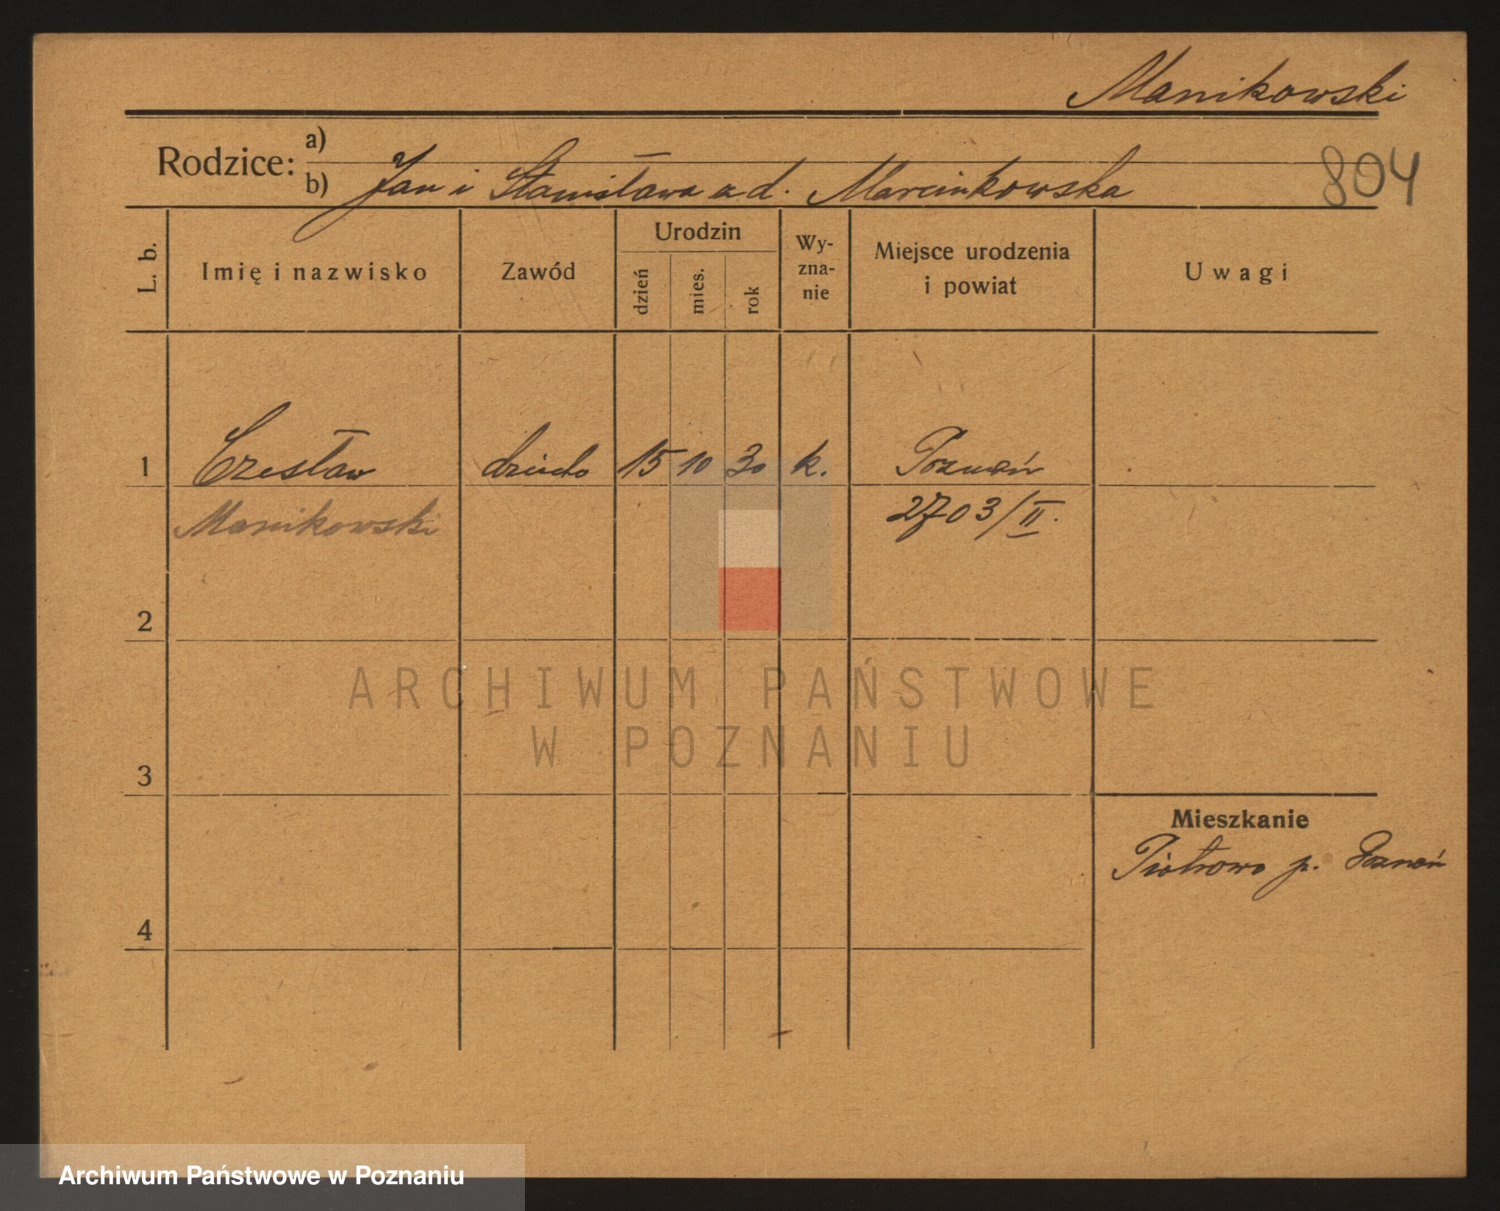 Manikowski
Rodzice: a)
b) Jan i Stanisława a d. Marcinkowska
804
L. b. Imię i nazwisko Zawód Urodzin dzień mies. rok Wy-zna-nie Miejsce urodzenia i powiat Uwagi
1 Czesław dziecko 15 10 30 k. Poznań
Manikowski 2703/II.
2
ARCHIWUM PAŃSTWOWE
W POZNANIU
3
Mieszkanie
Piotrowo p. Poznań
4
Archiwum Państwowe w Poznaniu